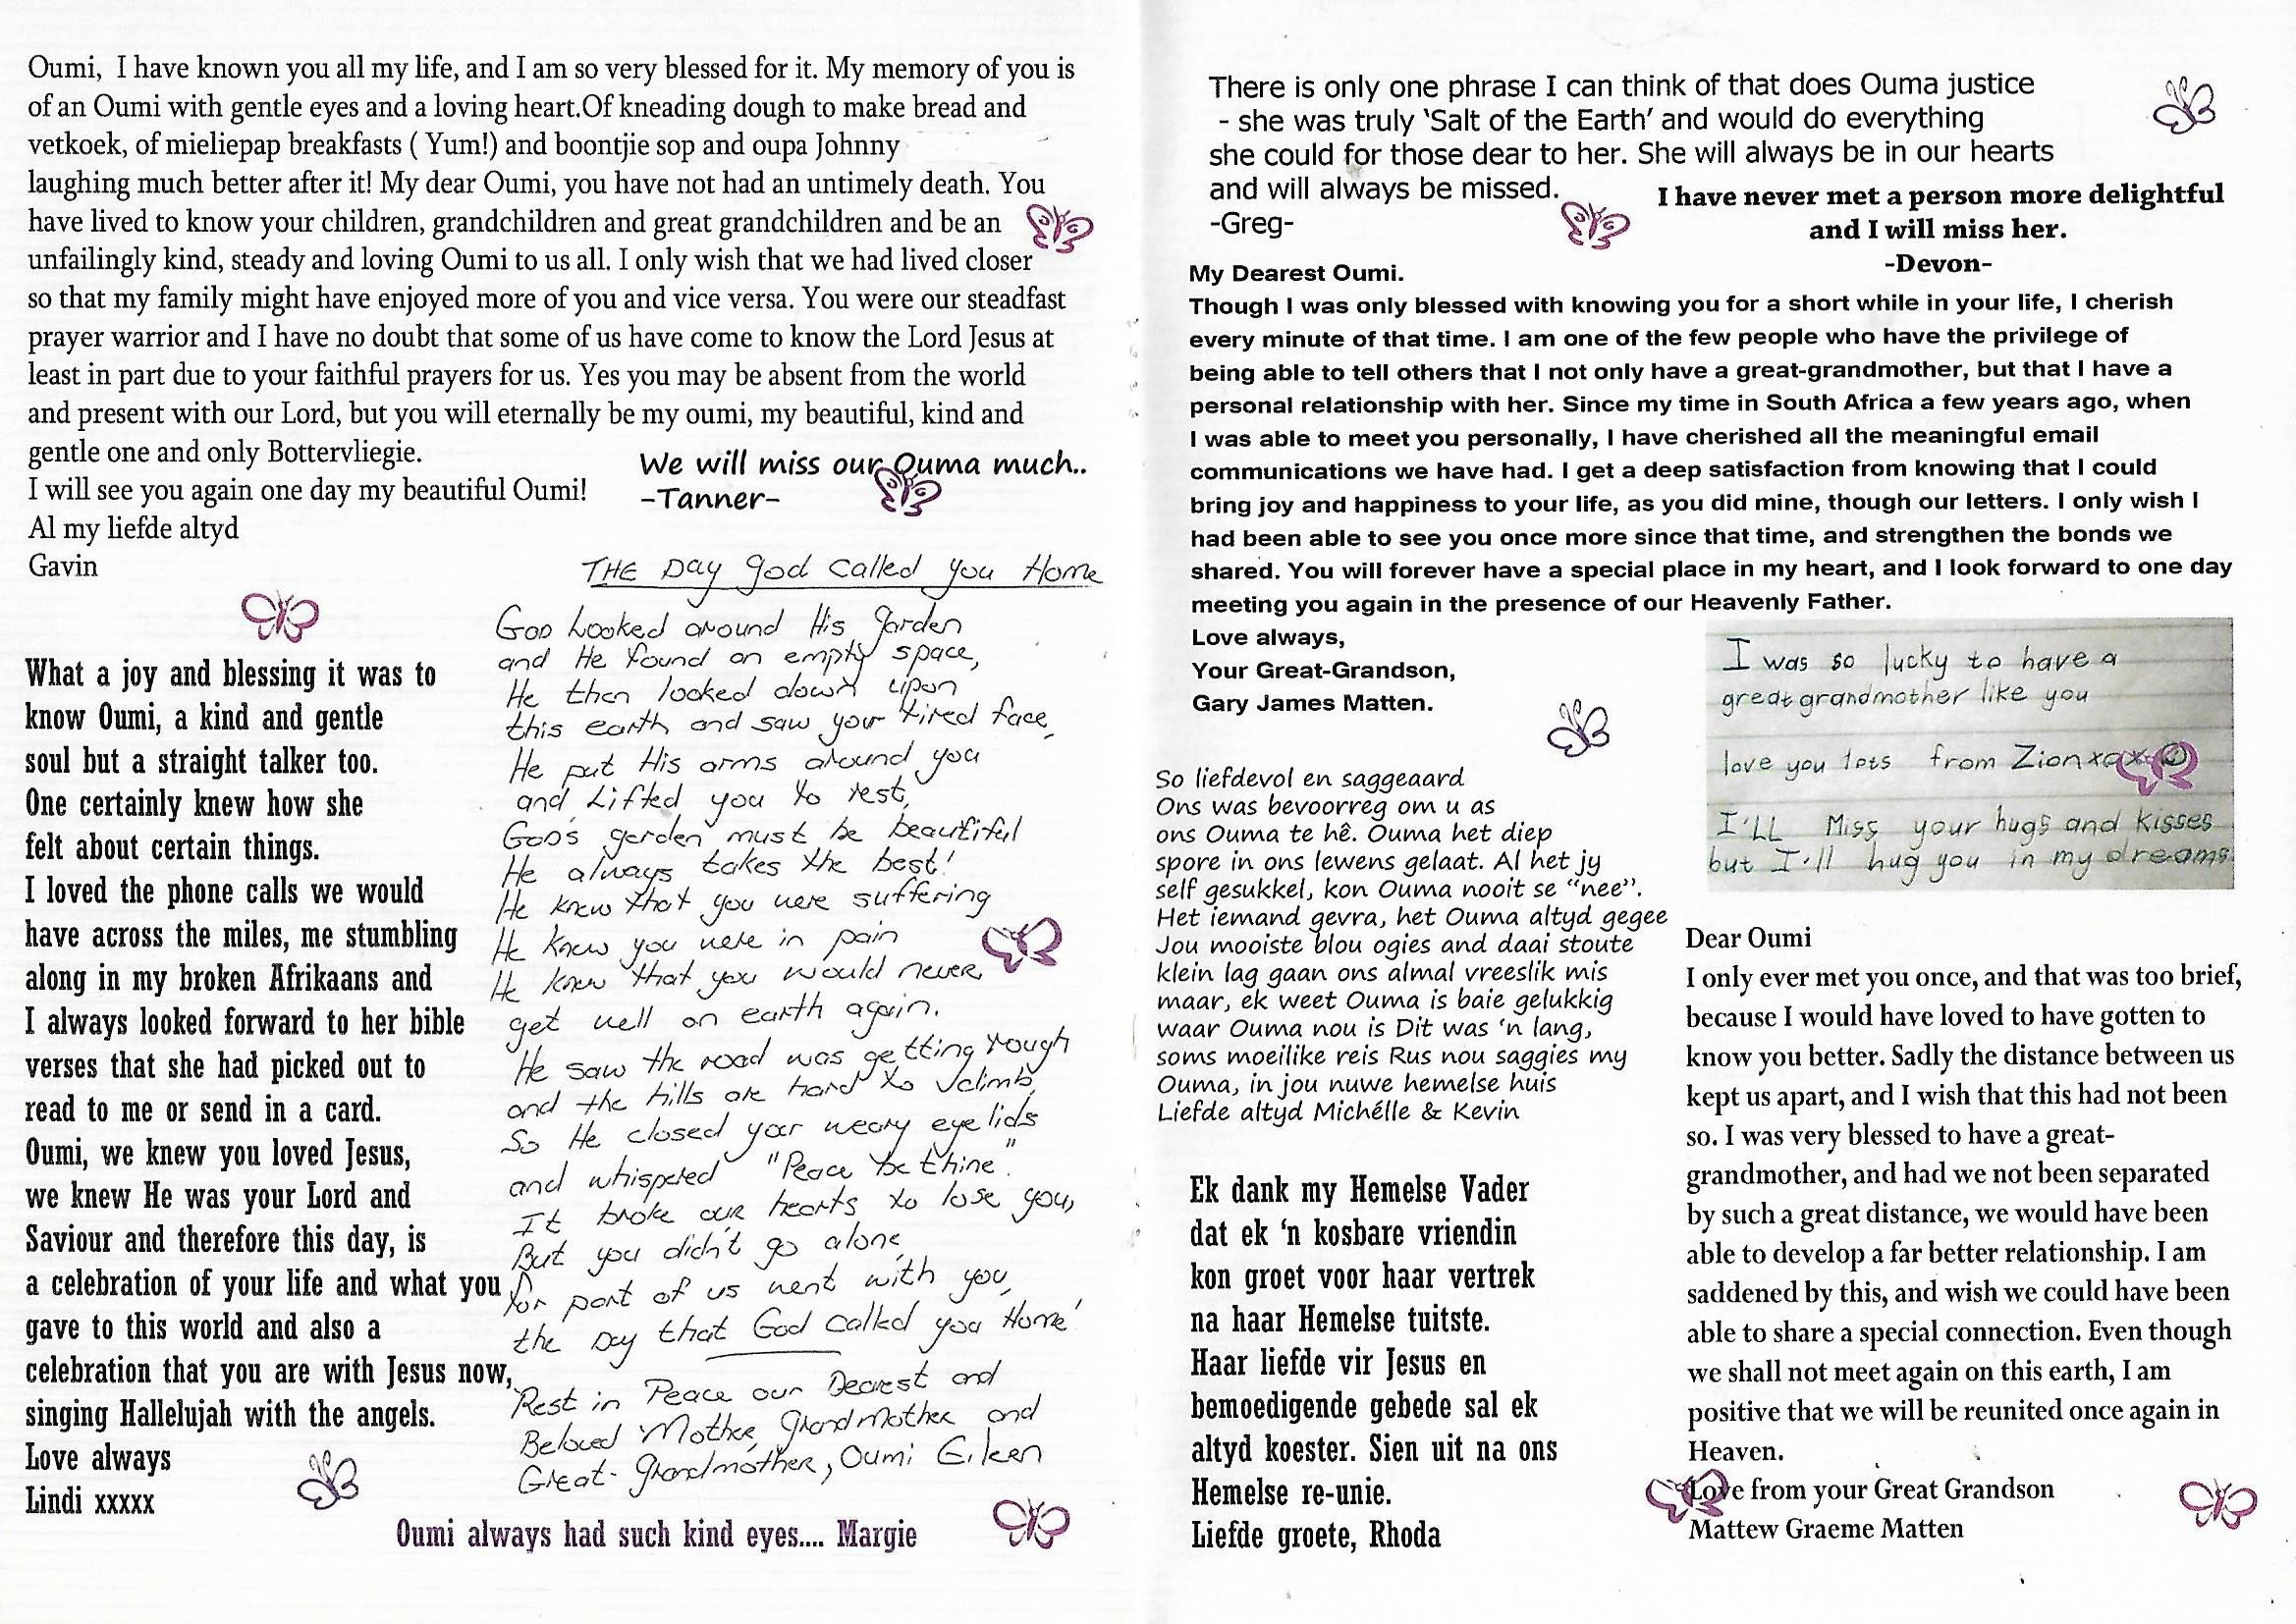 Oumi,  I have known you all my life, and I am so very blessed for it. My memory of you is
of an Oumi with gentle eyes and a loving heart.Of kneading dough to make bread and
vetkoek, of mieliepap breakfasts ( Yum!) and boontjie sop and oupa Johnny
laughing much better after it! My dear Oumi, you have not had an untimely death. You
have lived to know your children, grandchildren and great grandchildren and be an
unfailingly kind, steady and loving Oumi to us all. I only wish that we had lived closer
so that my family might have enjoyed more of you and vice versa. You were our steadfast
prayer warrior and I have no doubt that some of us have come to know the Lord Jesus at
least in part due to your faithful prayers for us. Yes you may be absent from the world
and present with our Lord, but you will eternally be my oumi, my beautiful, kind and
gentle one and only Bottervliegie.
I will see you again one day my beautiful Oumi!
Al my liefde altyd
Gavin
We will miss our Ouma much..
-Tanner-
What a joy and blessing it was to
know Oumi, a kind and gentle
soul but a straight talker too.
One certainly knew how she
felt about certain things.
I loved the phone calls we would
have across the miles, me stumbling
along in my broken Afrikaans and
I always looked forward to her bible
verses that she had picked out to
read to me or send in a card.
Oumi, we knew you loved Jesus,
we knew He was your Lord and
Saviour and therefore this day, is
a celebration of your life and what you
gave to this world and also a
celebration that you are with Jesus now,
singing Hallelujah with the angels.
Love always
Lindi xxxxx
THE Day God called you Home
God Looked around His Garden
and He found an empty space,
He then looked down upon
this earth and saw your tired face,
He put His arms around you
and Lifted you to rest,
God's garden must be beautiful
He always takes the best!
He knew that you were suffering
He knew you were in pain
He knew that you would never,
get well on earth again.
He saw the road was getting rough
and the hills are hard to climb,
So He closed your weary eye lids
and whispered "Peace be thine".
It broke our hearts to lose you,
But you didn't go alone,
for part of us went with you,
the Day that God called you Home!
Rest in Peace our Dearest and
Beloved Mother, Grandmother and
Great-Grandmother, Oumi Eileen
Oumi always had such kind eyes.... Margie
There is only one phrase I can think of that does Ouma justice
- she was truly ‘Salt of the Earth’ and would do everything
she could for those dear to her. She will always be in our hearts
and will always be missed.
-Greg-
I have never met a person more delightful
and I will miss her.
-Devon-
My Dearest Oumi.
Though I was only blessed with knowing you for a short while in your life, I cherish
every minute of that time. I am one of the few people who have the privilege of
being able to tell others that I not only have a great-grandmother, but that I have a
personal relationship with her. Since my time in South Africa a few years ago, when
I was able to meet you personally, I have cherished all the meaningful email
communications we have had. I get a deep satisfaction from knowing that I could
bring joy and happiness to your life, as you did mine, though our letters. I only wish I
had been able to see you once more since that time, and strengthen the bonds we
shared. You will forever have a special place in my heart, and I look forward to one day
meeting you again in the presence of our Heavenly Father.
Love always,
Your Great-Grandson,
Gary James Matten.
I was so lucky to have a
great grandmother like you
love you lots from Zion
I'LL Miss your hugs and kisses
but I'll hug you in my dreams
So liefdevol en saggeaard
Ons was bevoorreg om u as
ons Ouma te hê. Ouma het diep
spore in ons lewens gelaat. Al het jy
self gesukkel, kon Ouma nooit se “nee”.
Het iemand gevra, het Ouma altyd gegee
Jou mooiste blou ogies and daai stoute
klein lag gaan ons almal vreeslik mis
maar, ek weet Ouma is baie gelukkig
waar Ouma nou is Dit was ‘n lang,
soms moeilike reis Rus nou saggies my
Ouma, in jou nuwe hemelse huis
Liefde altyd Michélle & Kevin
Ek dank my Hemelse Vader
dat ek ‘n kosbare vriendin
kon groet voor haar vertrek
na haar Hemelse tuitste.
Haar liefde vir Jesus en
bemoedigende gebede sal ek
altyd koester. Sien uit na ons
Hemelse re-unie.
Liefde groete, Rhoda
Dear Oumi
I only ever met you once, and that was too brief,
because I would have loved to have gotten to
know you better. Sadly the distance between us
kept us apart, and I wish that this had not been
so. I was very blessed to have a great-
grandmother, and had we not been separated
by such a great distance, we would have been
able to develop a far better relationship. I am
saddened by this, and wish we could have been
able to share a special connection. Even though
we shall not meet again on this earth, I am
positive that we will be reunited once again in
Heaven.
Love from your Great Grandson
Mattew Graeme Matten